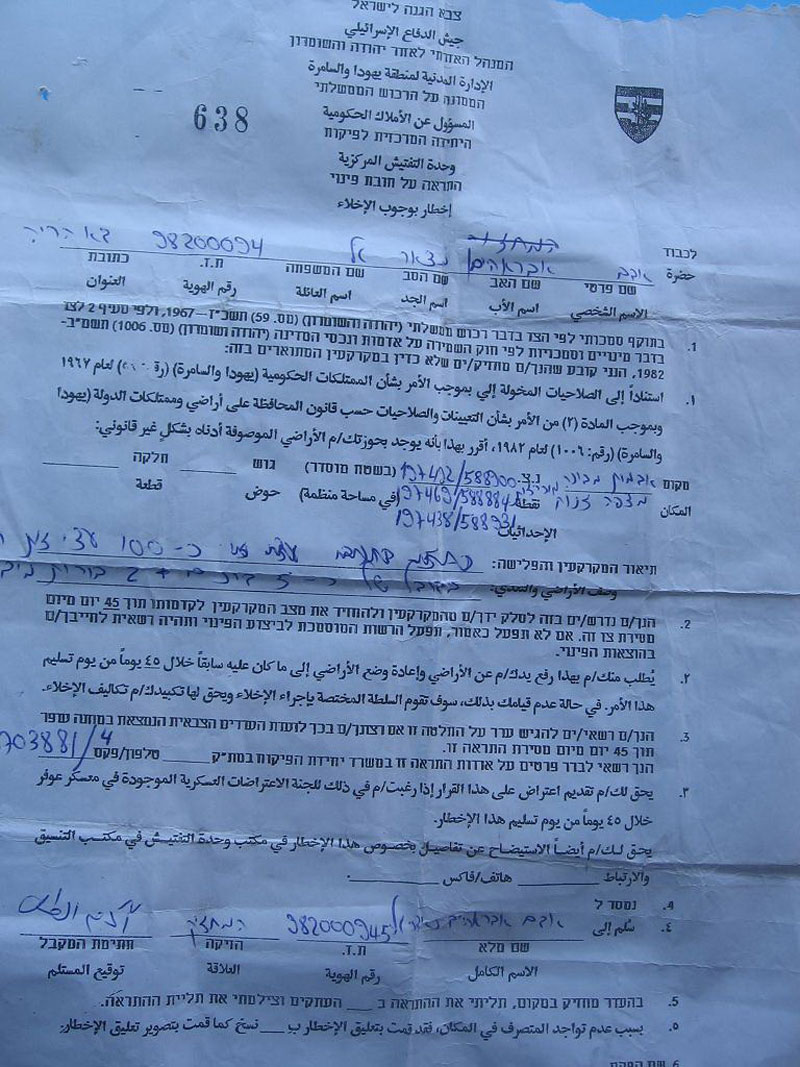 צבא הגנה לישראל
جيش الدفاع الإسرائيلي
המנהל האזרחי לאזור יהודה והשומרון
الإدارة المدنية لمنطقة يهودا والسامرة
הממונה על הרכוש הממשלתי
المسؤول عن الأملاك الحكومية
היחידה המרכזית לפיקוח
وحدة التفتيش المركزية
התראה על חובת פינוי
إخطار بوجوب الإخلاء
638
לכבוד
חضرة
שם פרטי שם האב שם הסב שם המשפחה ת.ז. כתובת
الاسم الشخصي اسم الأب اسم الجد اسم العائلة رقم الهوية العنوان
1. בתוקף סמכותי לפי הצו בדבר רכוש ממשלתי (יהודה והשומרון) (מס. 59) תשכ"ז–1967, ולפי סעיף 2 לצו
בדבר מינויים וסמכויות לפי חוק השמירה על אדמות ונכסי המדינה (יהודה ושומרון) (מס. 1006) תשמ"ב–
1982, הנני קובע שהנך/ם מחזיק/ים שלא כדין במקרקעין המתוארים בזה:
١. استناداً إلى الصلاحيات المخولة إلي بموجب الأمر بشأن الممتلكات الحكومية (يهودا والسامرة) لعام ١٩٦٧
وبموجب المادة (٢) من الأمر بشأن التعيينات والصلاحيات حسب قانون المحافظة على أراضي وممتلكات الدولة (يهودا
والسامرة) (رقم: ١٠٠٦) لعام ١٩٨٢، أقرر بهذا بأنه يوجد بحوزتك/م الأراضي الموصوفة أدناه بشكل غير قانوني:
מקום נ.צ. 197492/588900 (בשטח מוסדר) גוש חלקה
المكان نقطة 197469/588884 (في مساحة منظمة) حوض قطعة
الإحداثيات 197438/588931
תיאור המקרקעין והפלישה: כ-100 עצי זית
وصف الأراضي والتعدي:
2. הנך/ם נדרש/ים בזה לסלק ידך/ם מהמקרקעין ולהחזיר את מצב המקרקעין לקדמותו תוך 45 יום מיום
מסירת צו זה. אם לא תפעל כאמור, תפעל הרשות המוסמכת לביצוע הפינוי ותהיה רשאית לחייבך/ם
בהוצאות הפינוי.
٢. يُطلب منك/م بهذا رفع يدك/م عن الأراضي وإعادة وضع الأراضي إلى ما كان عليه سابقاً خلال ٤٥ يوماً من يوم تسليم
هذا الأمر. في حالة عدم قيامك بذلك، سوف تقوم السلطة المختصة بإجراء الإخلاء ويحق لها تكبيدك/م تكاليف الإخلاء.
3. הנך/ם רשאי/ים להגיש ערר על החלטה זו אם רצונך/ם בכך לועדת העררים הצבאית הנמצאת במחנה עופר
תוך 45 יום מיום מסירת התראה זו.
הנך רשאי לברר פרטים על אודות התראה זו במשרד יחידת הפיקוח במת"ק טלפון/פקס 703881/4
٣. يحق لك/م تقديم اعتراض على هذا القرار إذا رغبت/م في ذلك للجنة الاعتراضات العسكرية الموجودة في معسكر عوفر
خلال ٤٥ يوماً من يوم تسليم هذا الإخطار.
يحق لك/م أيضاً الاستيضاح عن تفاصيل بخصوص هذا الإخطار في مكتب وحدة التفتيش في مكتب التنسيق
والارتباط هاتف/فاكس:
4. נמסר ל
٤. سُلم إلى
שם מלא ת.ז. הזיקה חתימת המקבל
الاسم الكامل رقم الهوية العلاقة توقيع المستلم
5. בהעדר מחזיק במקום, תליתי את ההתראה ב העתקים וצילמתי את תליית ההתראה.
٥. بسبب عدم تواجد المتصرف في المكان، فقد قمت بتعليق الإخطار ب نسخ كما قمت بتصوير تعليق الإخطار.